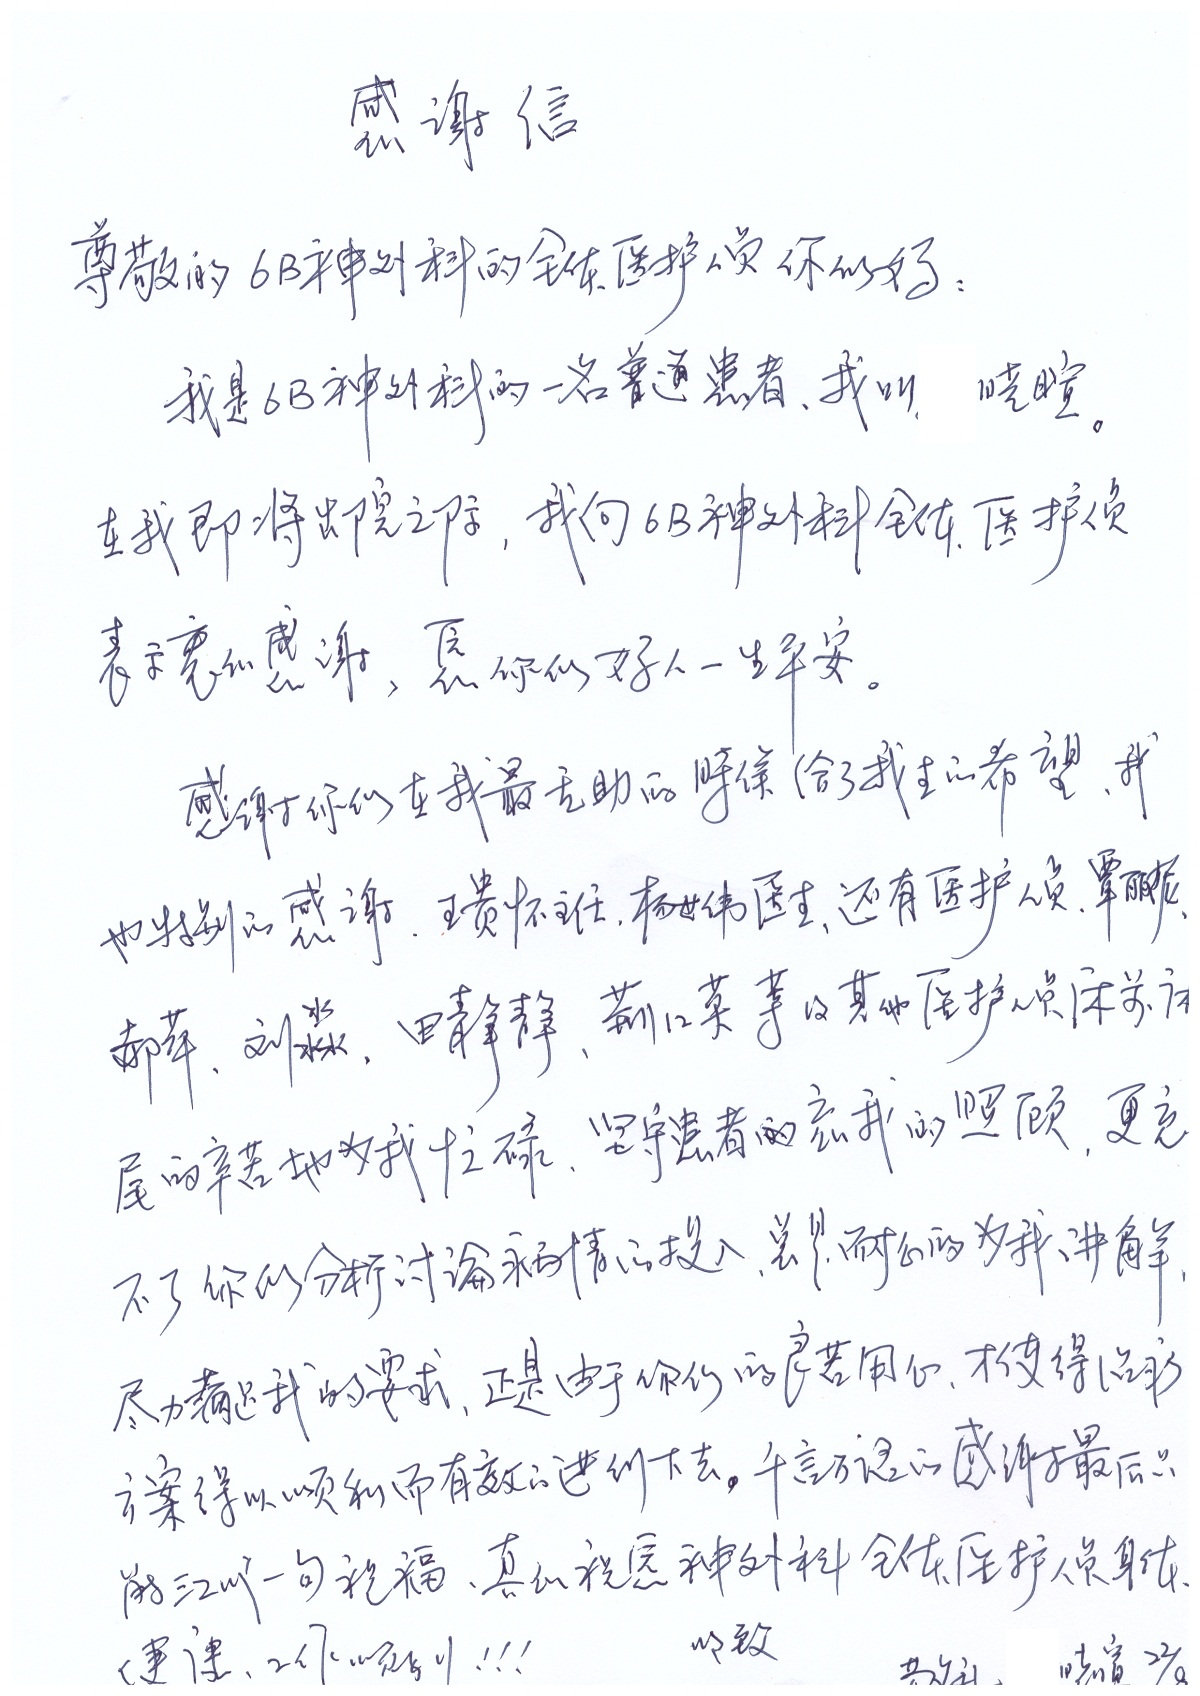 感谢信
尊敬的6B神外科的全体医护人员你们好:
我是6B神外科的一名普通患者、我叫 晓暄。
在我即将出院之际,我向6B神外科全体医护人员
表示衷心感谢、愿你们好人一生平安。
感谢你们在我最无助的时候给了我生的希望、我
也特别的感谢、王贵怀主任、杨世伟医生、还有医护人员、覃丽
郝萍、刘淼、田静静、荆江英等及其他医护人员床前床
尾的辛苦地为我忙碌、坚守患者的 我的照顾、更忘
不了你们分析讨论病情的投入、总是耐心的为我讲解、
尽力满足我的要求、正是由于你们的良苦用心、才使得治疗
方案得以顺利而有效的进行下去。千言万语的感谢最后只
能汇成一句祝福、真心祝愿神外科全体医护人员身体
健康、工作顺利!!!
晓暄